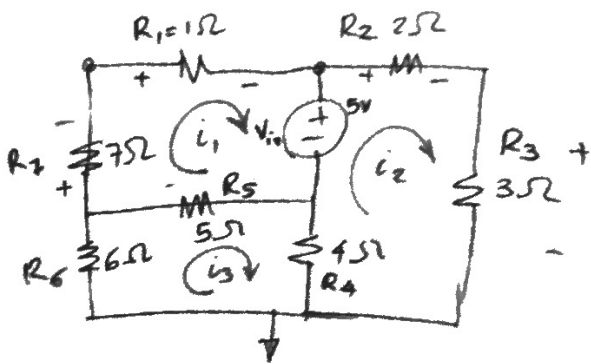 R₁=1Ω
R₂ 2Ω
+ - + -
5V
+
Vin
-
i₁
i₂
R₃ +
3Ω
-
-
R₇ 7Ω
+
- R₅
5Ω
R₆ 6Ω
i₃
4Ω
R₄